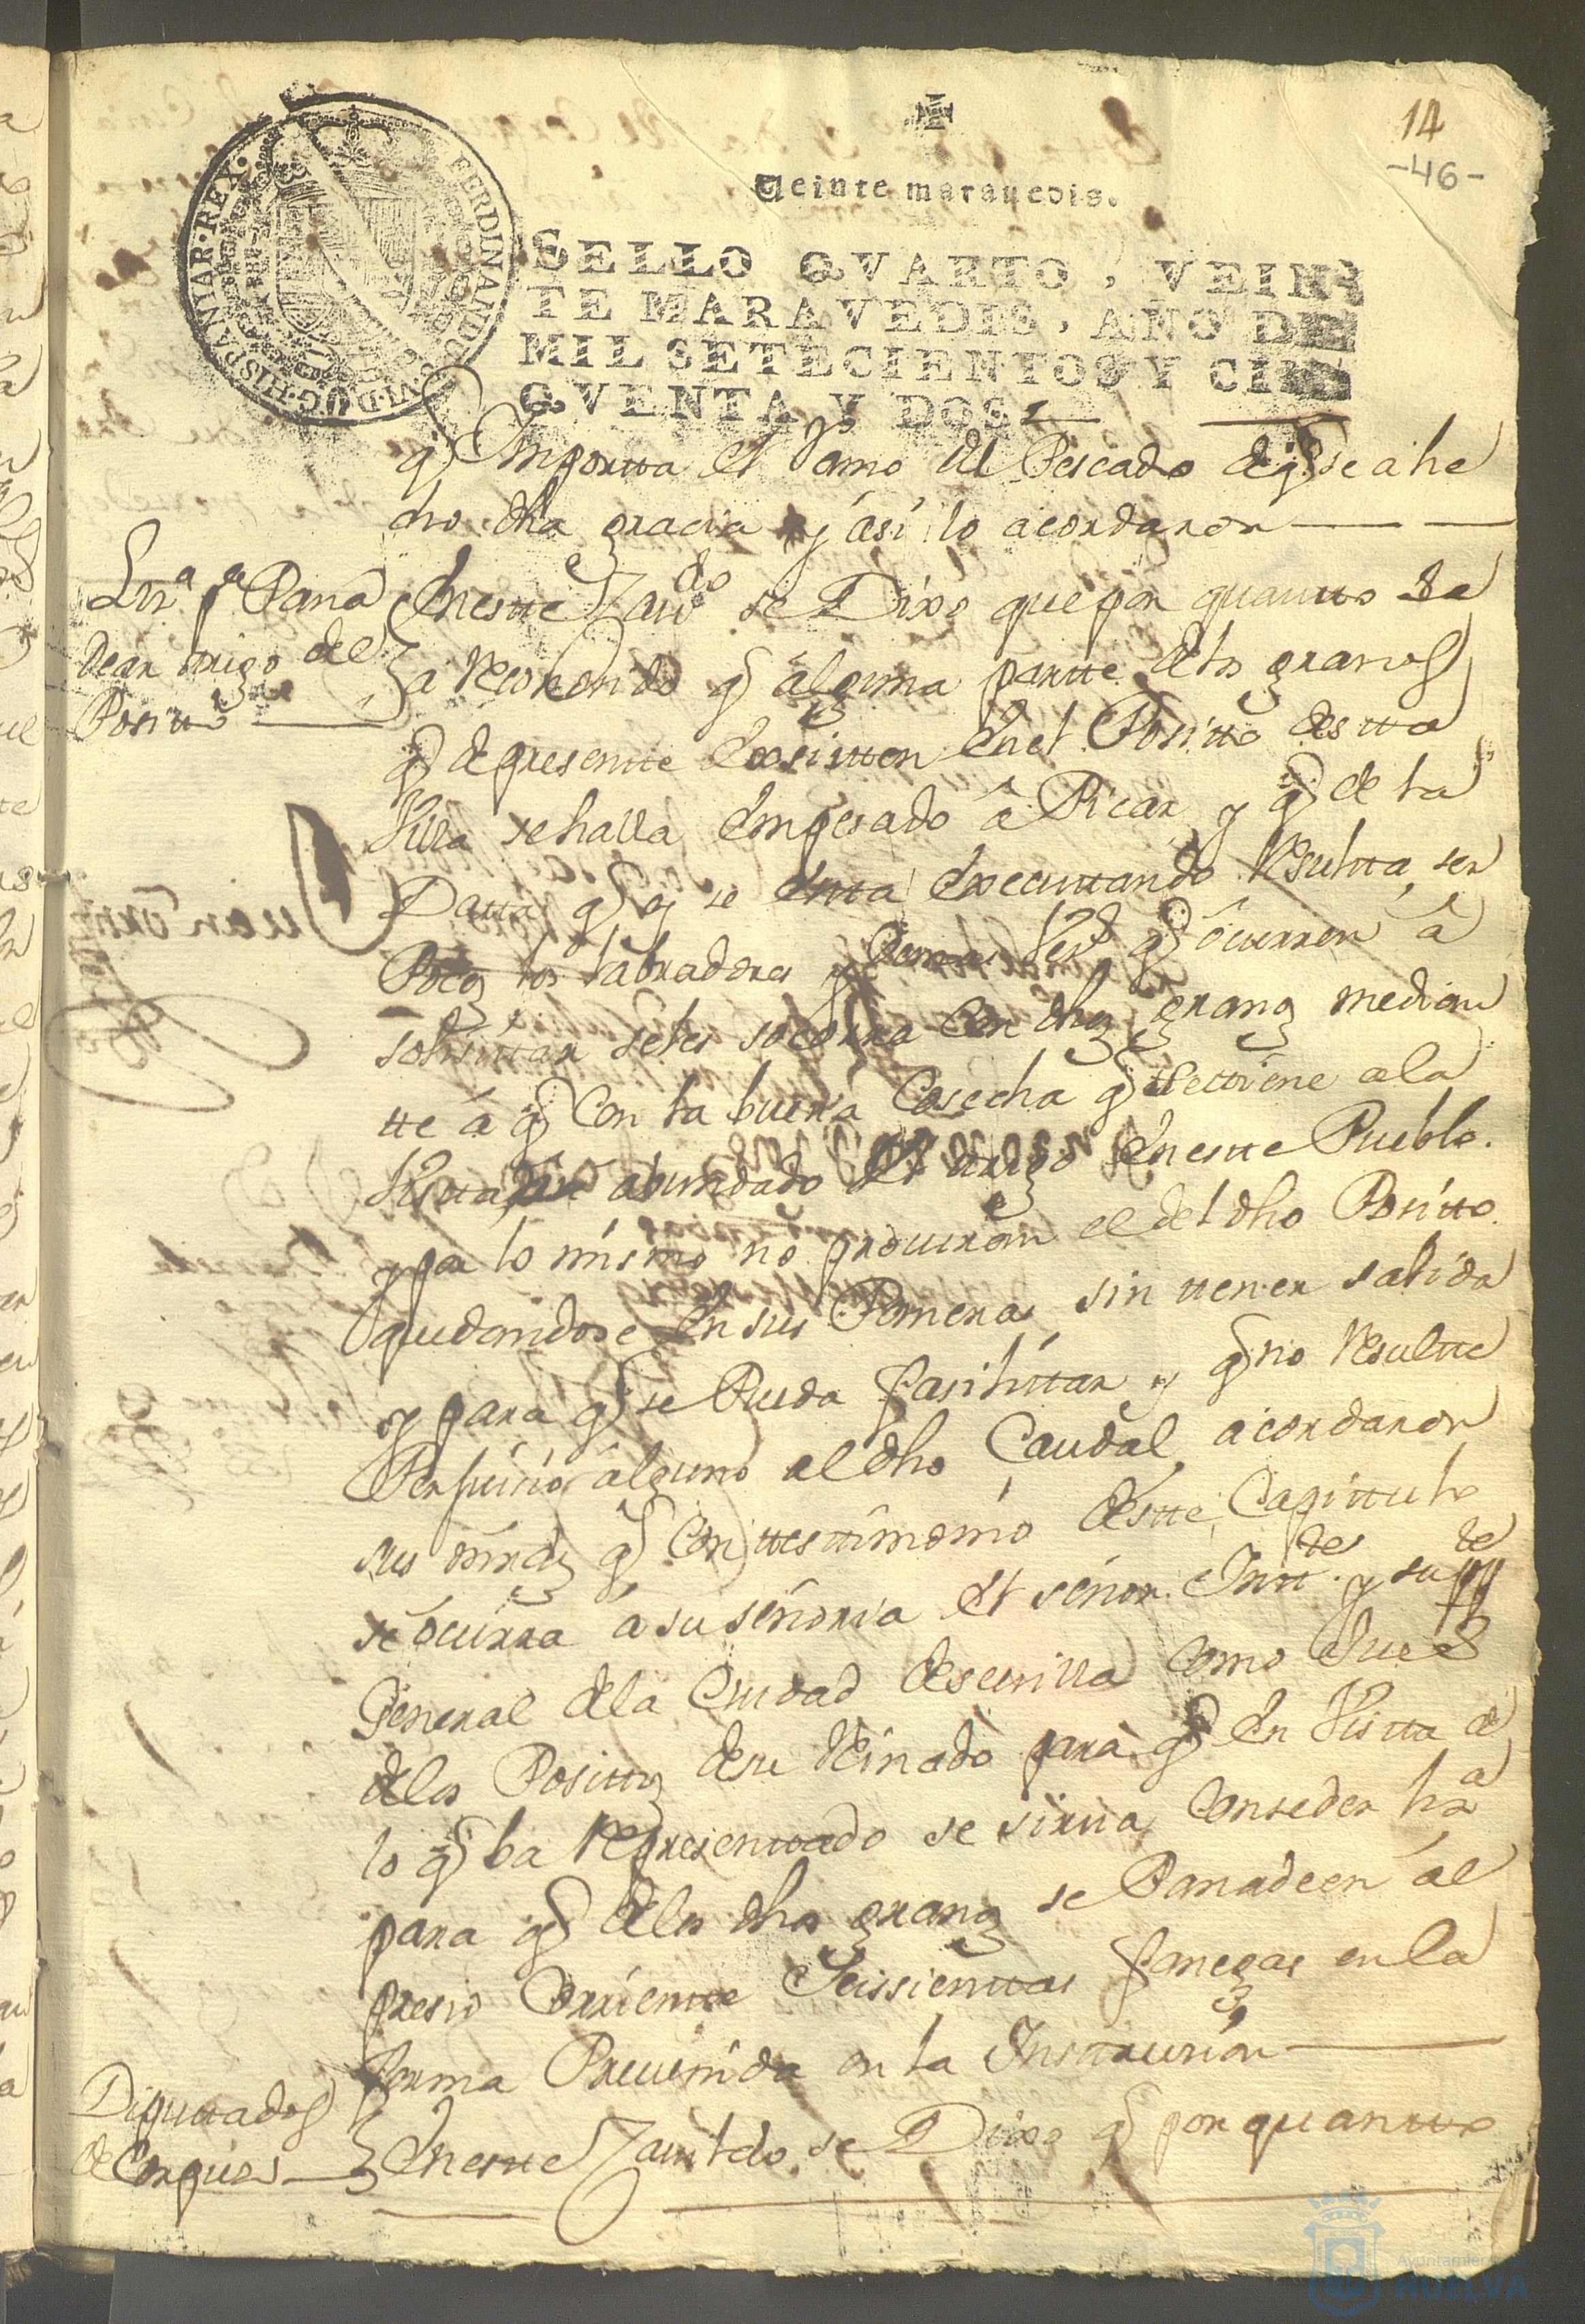 14
-46-
Veinte maravedis.
SELLO QVARTO, VEIN
TE MARAVEDIS, AÑO DE
MIL SETECIENTOS Y CIN
QVENTA Y DOS.
FERDINANDUS VI D G HISPANIAR REX
q Importta el Ramo del Pescado de q se a he
cho dha gracia y asi lo acordaron
Lizª pª Pana
dear trigo del
Positto
En este Cavdo se Dixo que por quantto se
a reconosido q alguna partte de los granos
q de presentte Exsisten en el Positto desta
Villa se halla Empesado a Picar y q de la
Datta q oy se esta Executtando Resulta ser
Pocos los labradores y demas Vez q ocurren a
solisittar se les socorra con dhos granos median
tte a q Con la buena Cosecha q se ttiene a la
Vistta abundado el trigo en este Pueblo.
y por lo mismo no el del dho Positto
quedandose en sus Paneras sin ttener salida
y para q se Pueda fasilittar y q no Resultte
Perjuicio alguno al dho Caudal acordaron
sus mrds q Con ttesttimonio destte Capittulo
se ocurra a su señoria el señor Intte y supte
General de la Ciudad de sevilla como Juez
de los Posittos de su Reinado para q En Vistta de
lo q ba Representtado se sirva Conseder liza
para q de los dhos granos se Panadeen al
presio Corrientte Seissienttas fanegas en la
forma Prevenida en la Instrucion
Diputtados
de Corpus
En este Cavildo se Dixo q por quantto
Ayuntamiento
HUELVA